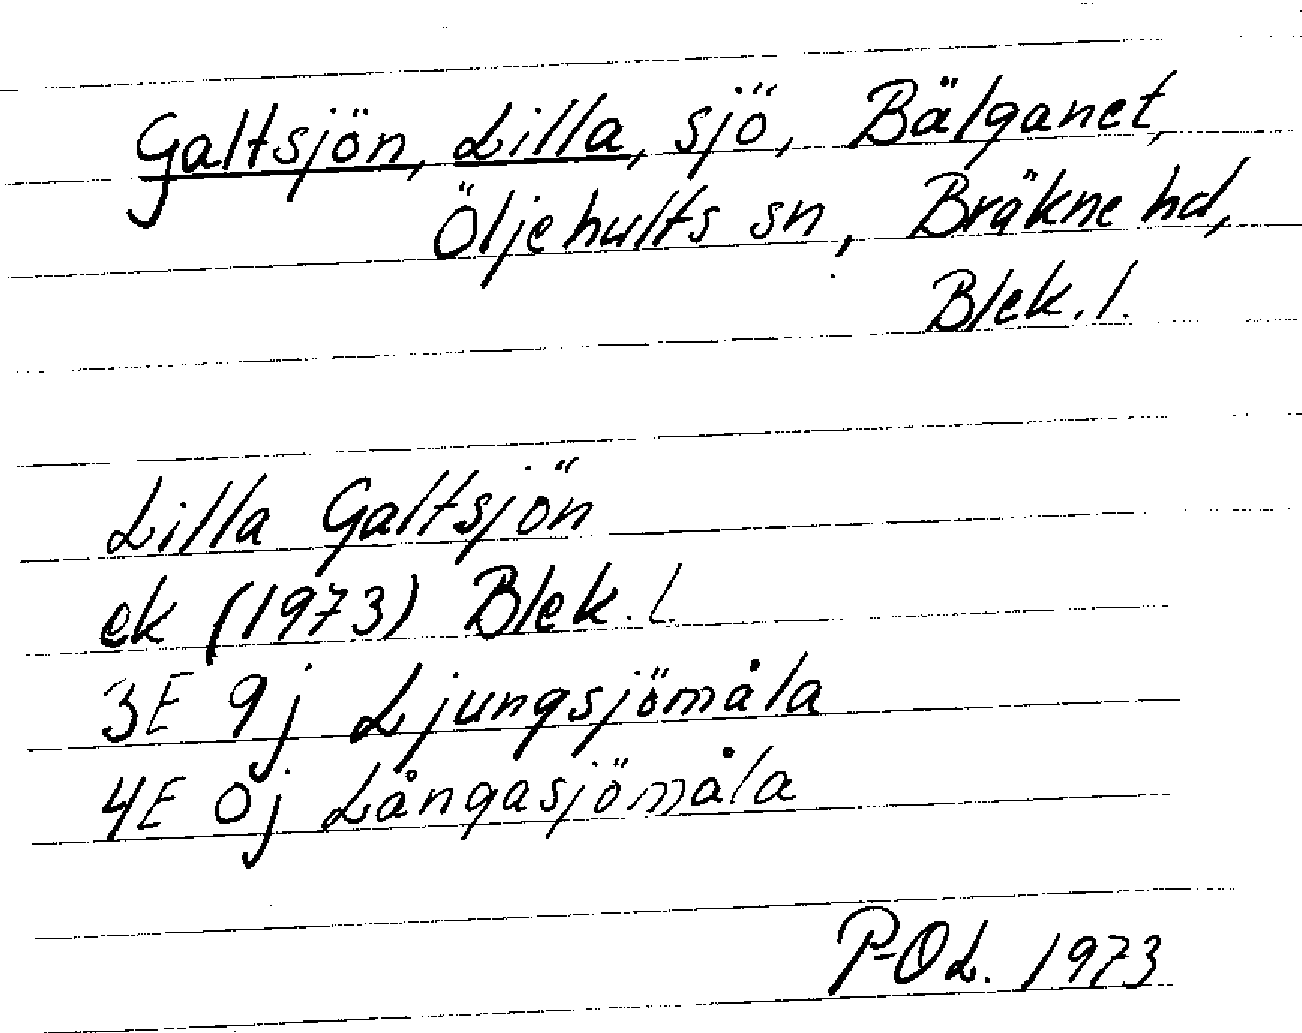 Galtsjön, Lilla, sjö, Bälganet,
Öljehults sn, Bräkne hd,
Blek. l.
Lilla Galtsjön
ek (1973) Blek. l.
3E 9j Ljungsjömåla
4E 0j Långasjömåla
P-OL. 1973